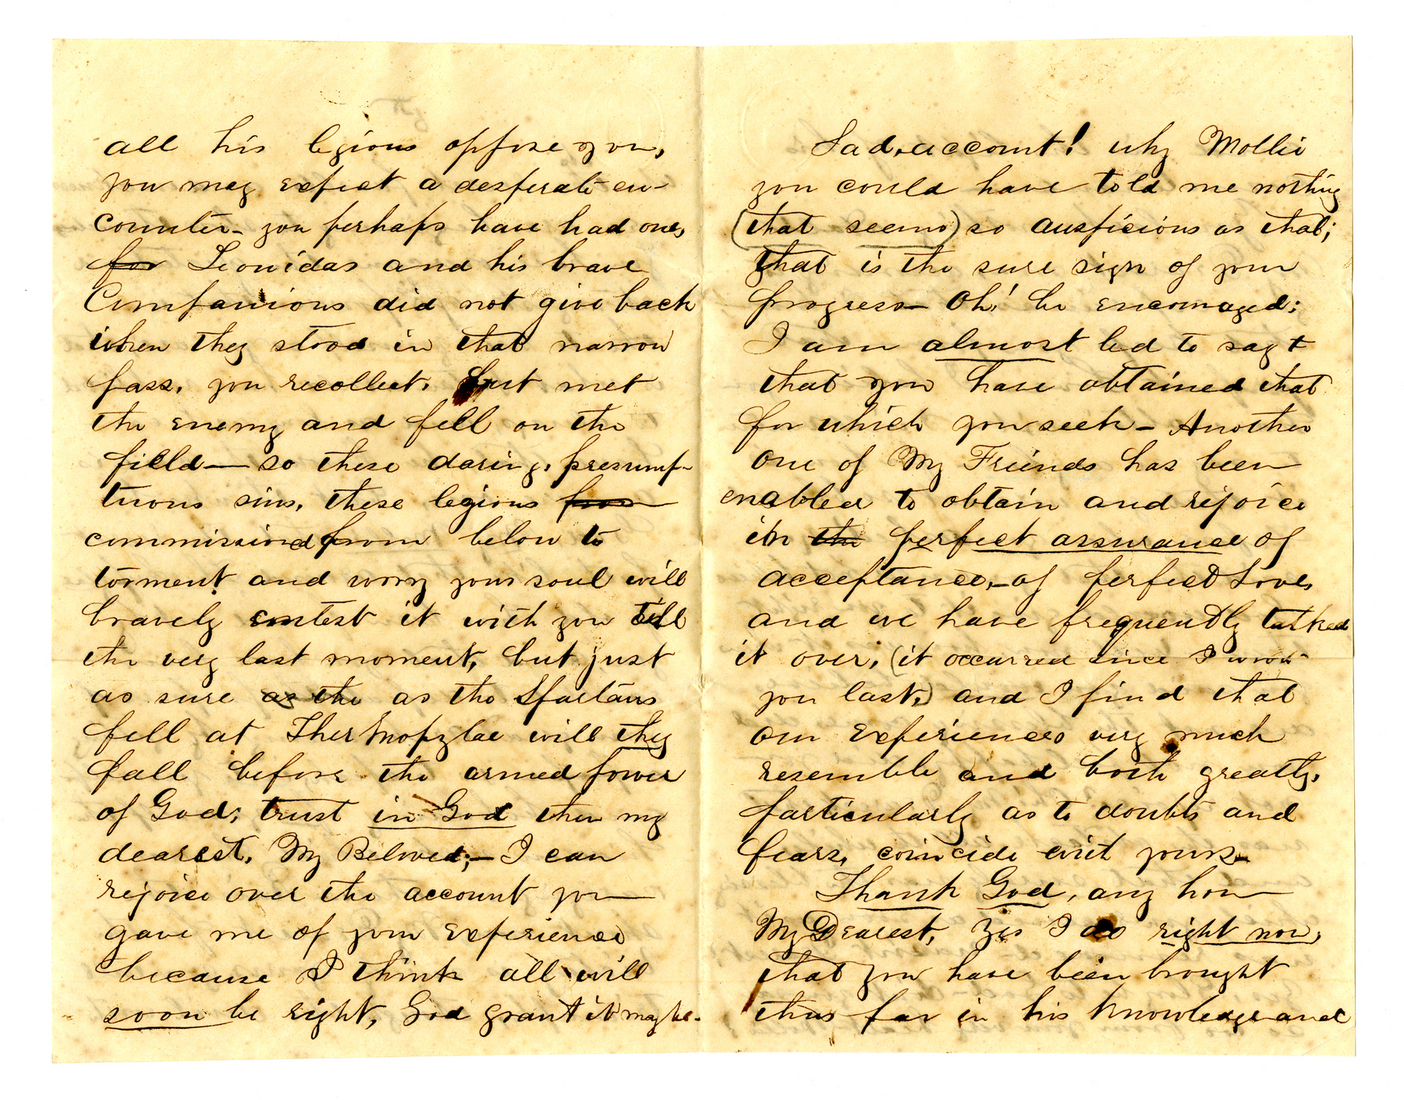 all his legions oppose you,
you may expect a desperate en-
counter- you perhaps have had one,
for Leonidas and his brave
Companions did not give back
when they stood in that narrow
pass, you recollect, but met
the enemy and fell on the
field — so these daring, presump-
tuous sins, these legions from
commissioned from below to
torment and worry your soul will
bravely contest it with you till
the very last moment, but just
as sure as the as the Spartans
fell at Thermopylae will they
fall before the armed power
of God; trust in God then my
dearest, My Beloved;- I can
rejoice over the account you
gave me of your experience
because I think all will
soon be right, God grant it may be.
Sad account! why Mollie
you could have told me nothing
(that seems) so auspicious as that;
that is the sure sign of your
progress- Oh! be encouraged;
I am almost led to say
that you have obtained that
for which you seek- Another
one of My Friends has been
enabled to obtain and rejoice
in the perfect assurance of
acceptance,- of perfect Love,
and we have frequently talked
it over, (it occurred since I wrote
you last,) and I find that
our experiences very much
resemble and both greatly,
particularly as to doubts and
fears, coincide wit yours-
Thank God, any how
My Dearest, Yes I do right now,
that you have been brought
thus far in his knowledge and